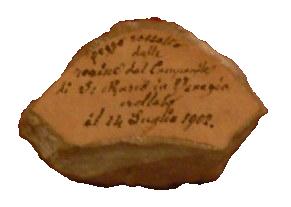 pezzo raccolto
dalle
rovine del Campanile
di S. Marco in Venezia
crollato
il 14 Luglio 1902.